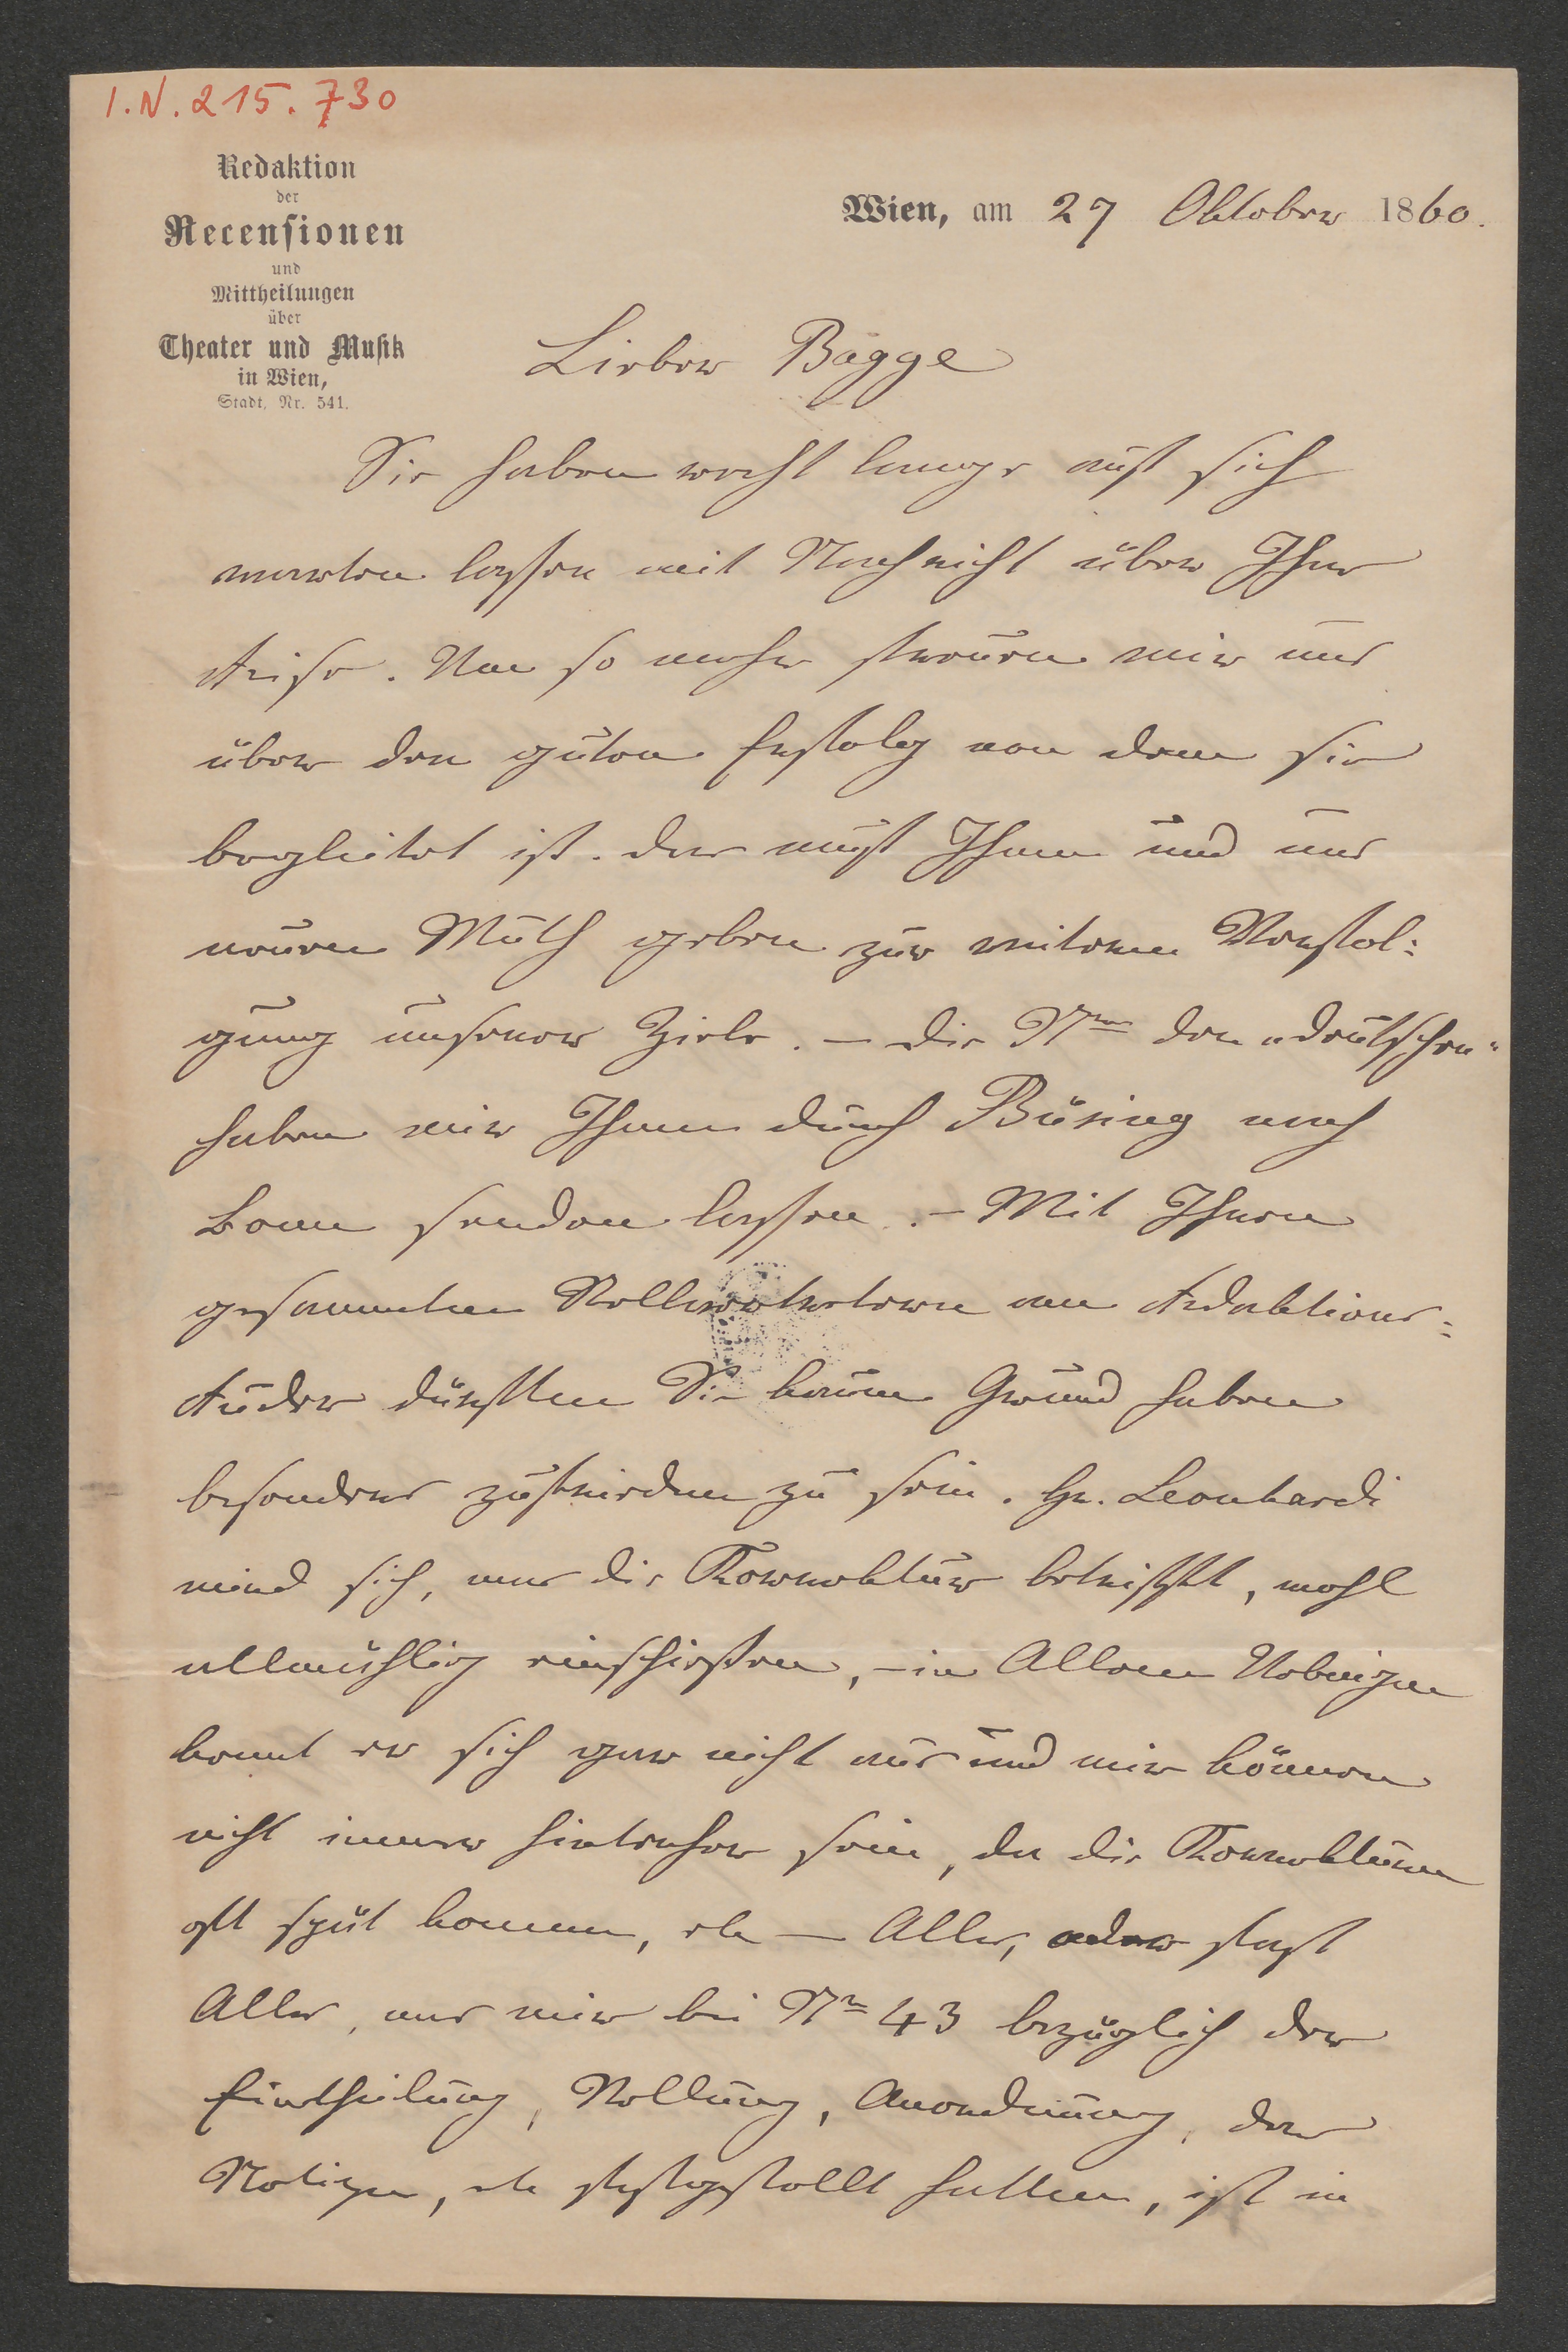 I.N. 215.730
Redaktion
der
Recensionen
und
Mittheilungen
über
Theater und Musik
in Wien,
Stadt, Nr. 541.
Wien, am 27 Oktober 1860.
Lieber Bagge
Sie haben recht lange auf sich
warten lassen mit Nachricht über Ihre
Reise. Um so mehr freuen wir uns
über den guten Erfolg von dem sie
begleitet ist. Das muß Ihnen und uns
neuen Muth geben zur weiteren Verfol=
gung unserer Ziele. – Die Nrn der „deutschen“
haben wir Ihnen durch Büsing nach
Bonn senden lassen. – Mit Ihren
gesammten Stellvertretern am Redaktions=
Ruder dürften Sie kaum Grund haben
besonders zufrieden zu sein. Hr. Leonhardi
wird sich, was die Korrektur betrifft, wohl
allmählig einschießen, – in Allem Uebrigen
kennt er sich gar nicht aus und wir können
nicht immer hinterher sein, da die Korrekturen
oft spät kommen, etc – Alles, oder fast
Alles, was wir bei Nr 43 bezüglich der
Eintheilung, Stellung, Anordnung, der
Notizen, etc festgestellt hatten, ist in